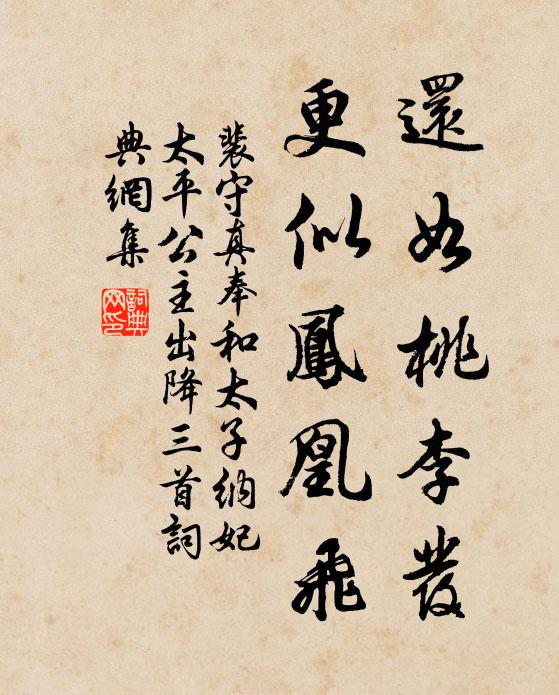 還如桃李發
更似鳳凰飛
裴守真奉和太子納妃
太平公主出降三首詞
典網集
詞典网印